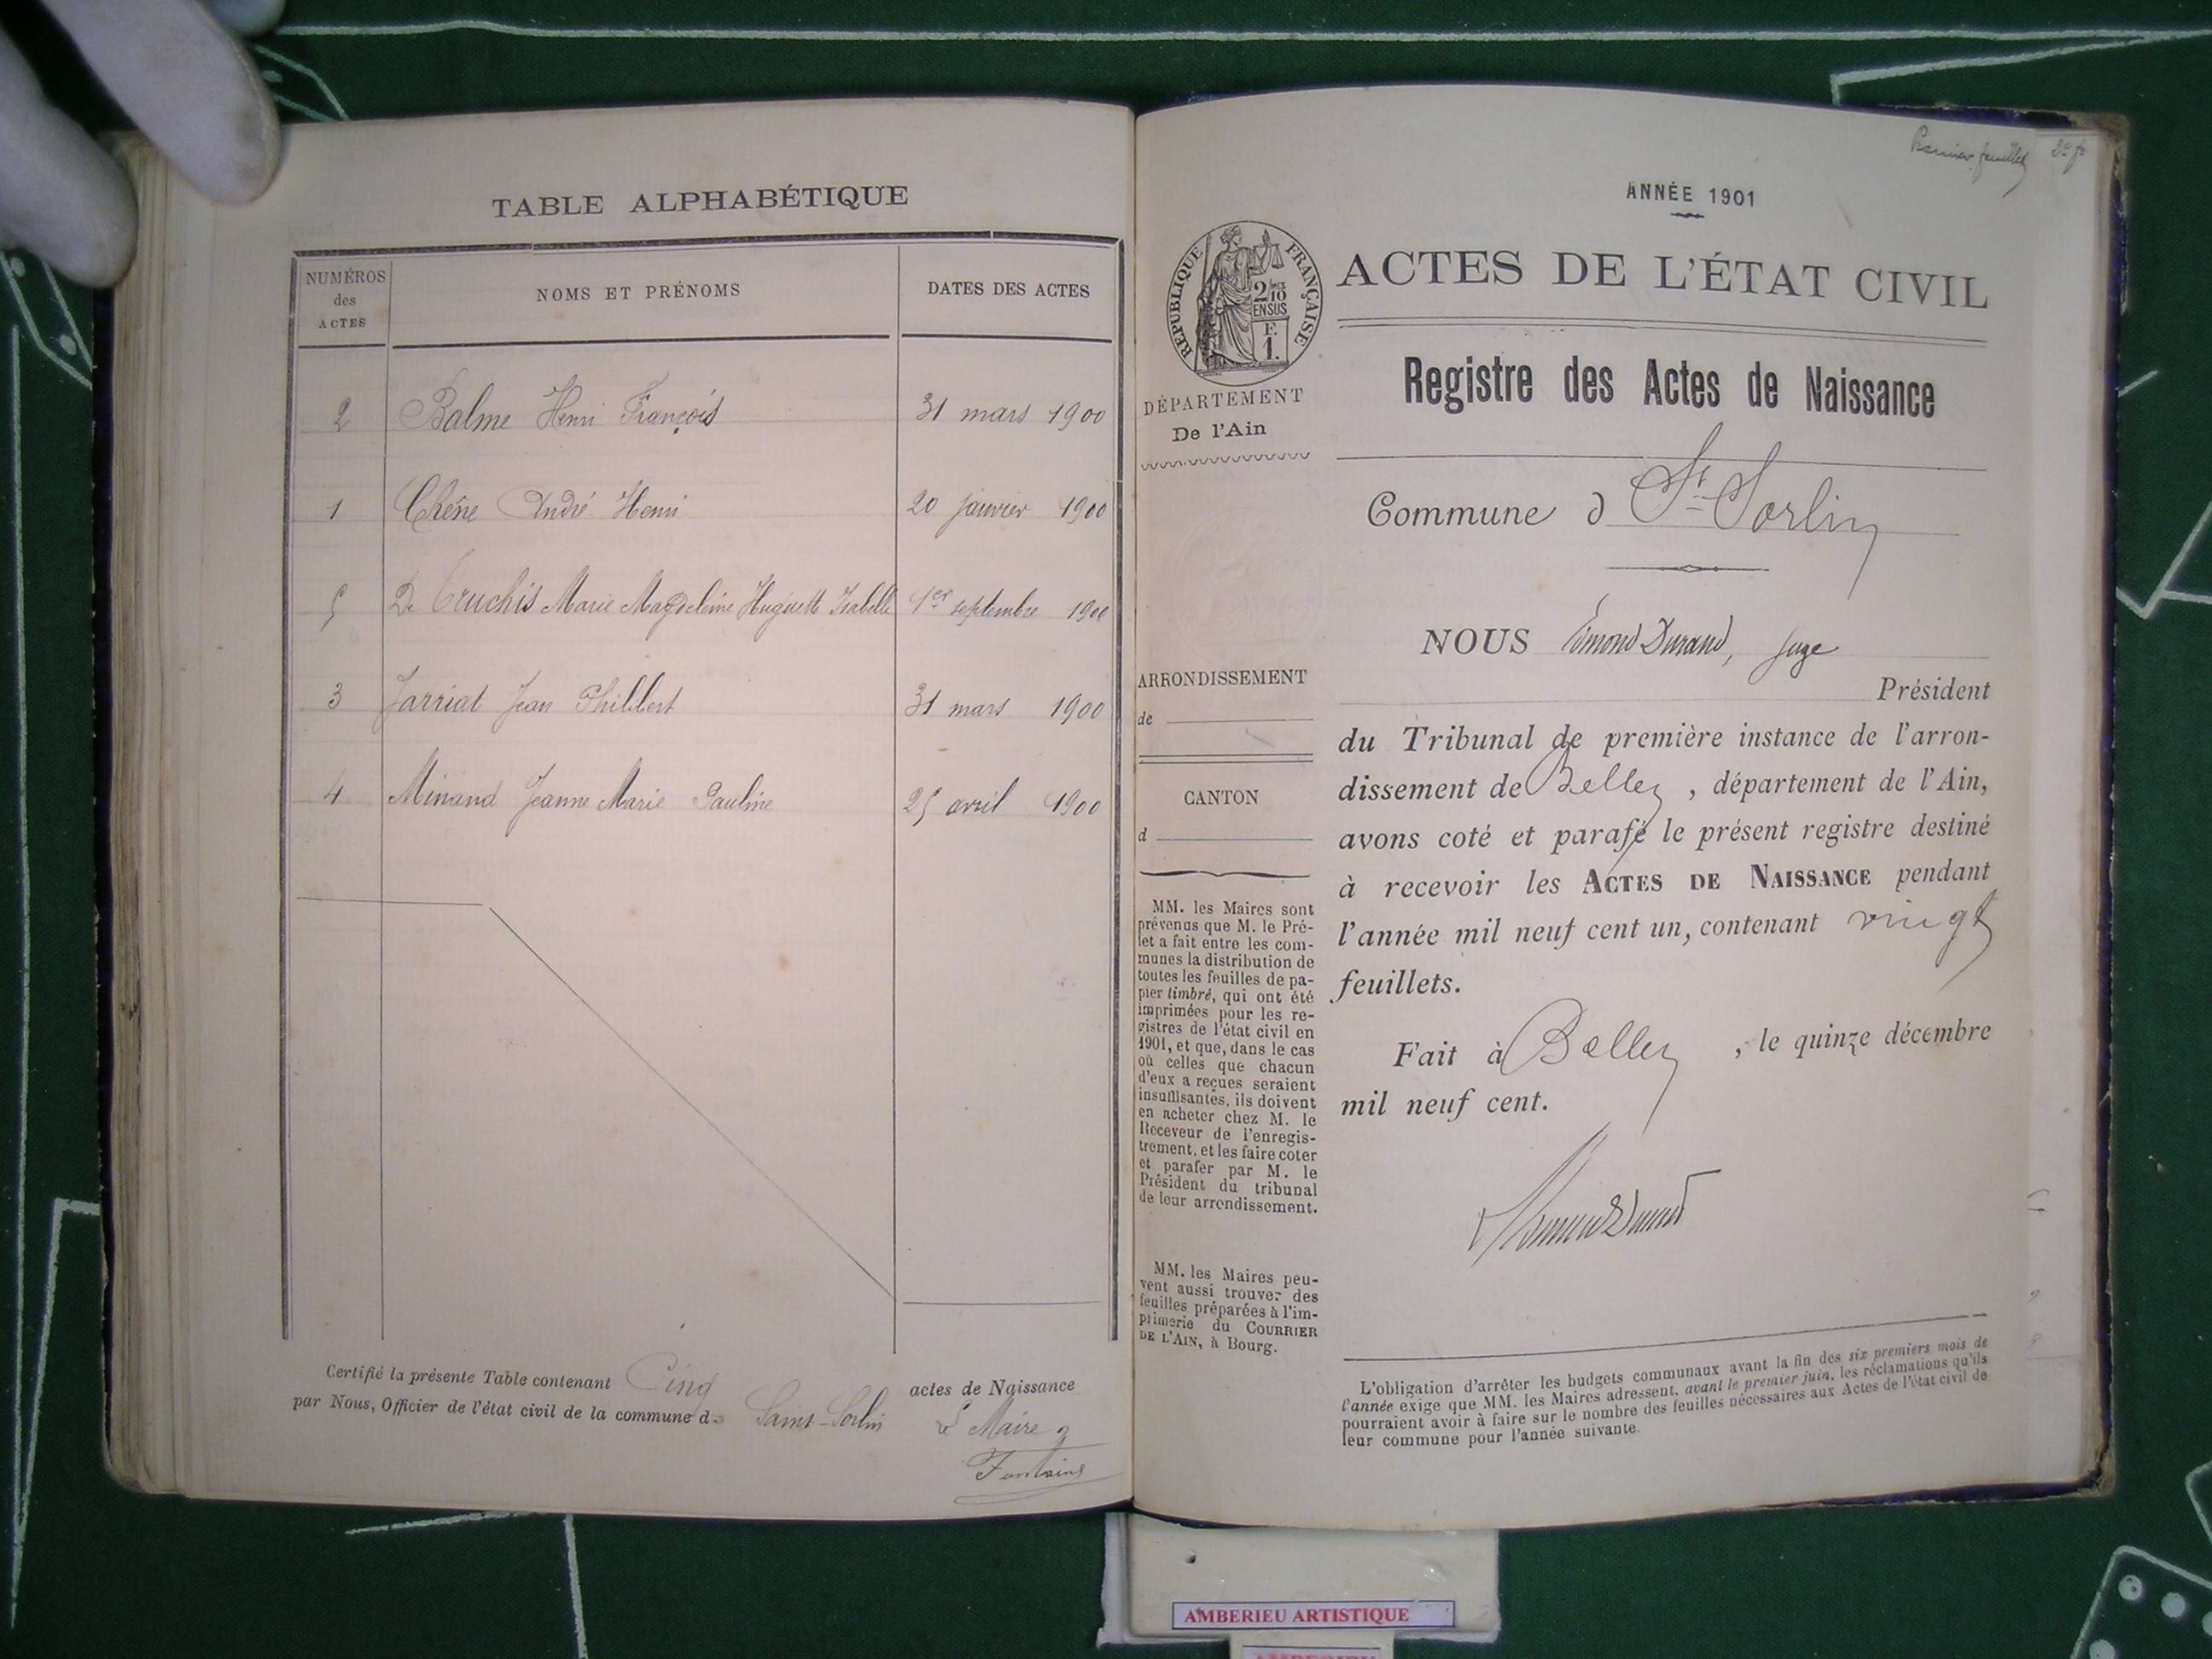 TABLE ALPHABÉTIQUE
NUMÉROS
des
ACTES
NOMS ET PRÉNOMS
DATES DES ACTES
2 Balme Henri François 31 mars 1900
1 Chêne André Henri 20 janvier 1900
5 De Truchis Marie Magdeleine Huguette Isabelle 1er septembre 1900
3 Jarriat Jean Philibert 31 mars 1900
4 Minand Jeanne Marie Pauline 25 avril 1900
Certifié la présente Table contenant Cinq actes de Naissance
par Nous, Officier de l'état civil de la commune d Saint-Sorlin
Le Maire
Fontaine
Premier feuillet
ANNÉE 1901
RÉPUBLIQUE FRANÇAISE
2/10
EN SUS
F.
1.
ACTES DE L'ÉTAT CIVIL
DÉPARTEMENT
De l'Ain
Registre des Actes de Naissance
Commune d St-Sorlin
NOUS Emond Durand, juge
Président
du Tribunal de première instance de l'arron-
dissement de Belley, département de l'Ain,
avons coté et parafé le présent registre destiné
à recevoir les ACTES DE NAISSANCE pendant
l'année mil neuf cent un, contenant vingt
feuillets.
Fait à Belley, le quinze décembre
mil neuf cent.
ARRONDISSEMENT
de
CANTON
d
MM. les Maires sont
prévenus que M. le Pré-
fet a fait entre les com-
munes la distribution de
toutes les feuilles de pa-
pier timbré, qui ont été
imprimées pour les re-
gistres de l'état civil en
1901, et que, dans le cas
où celles que chacun
d'eux a reçues seraient
insuffisantes, ils doivent
en acheter chez M. le
Receveur de l'enregis-
trement, et les faire coter
et parafer par M. le
Président du tribunal
de leur arrondissement.
MM. les Maires peu-
vent aussi trouver des
feuilles préparées à l'im-
primerie du COURRIER
DE L'AIN, à Bourg.
L'obligation d'arrêter les budgets communaux avant la fin des six premiers mois de
l'année exige que MM. les Maires adressent, avant le premier juin, les réclamations qu'ils
pourraient avoir à faire sur le nombre des feuilles nécessaires aux Actes de l'état civil de
leur commune pour l'année suivante.
AMBERIEU ARTISTIQUE